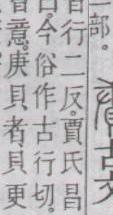 部。古文
皆行二反。賈氏昌
曰。今俗作古行切。
意。庚貝者、貝更